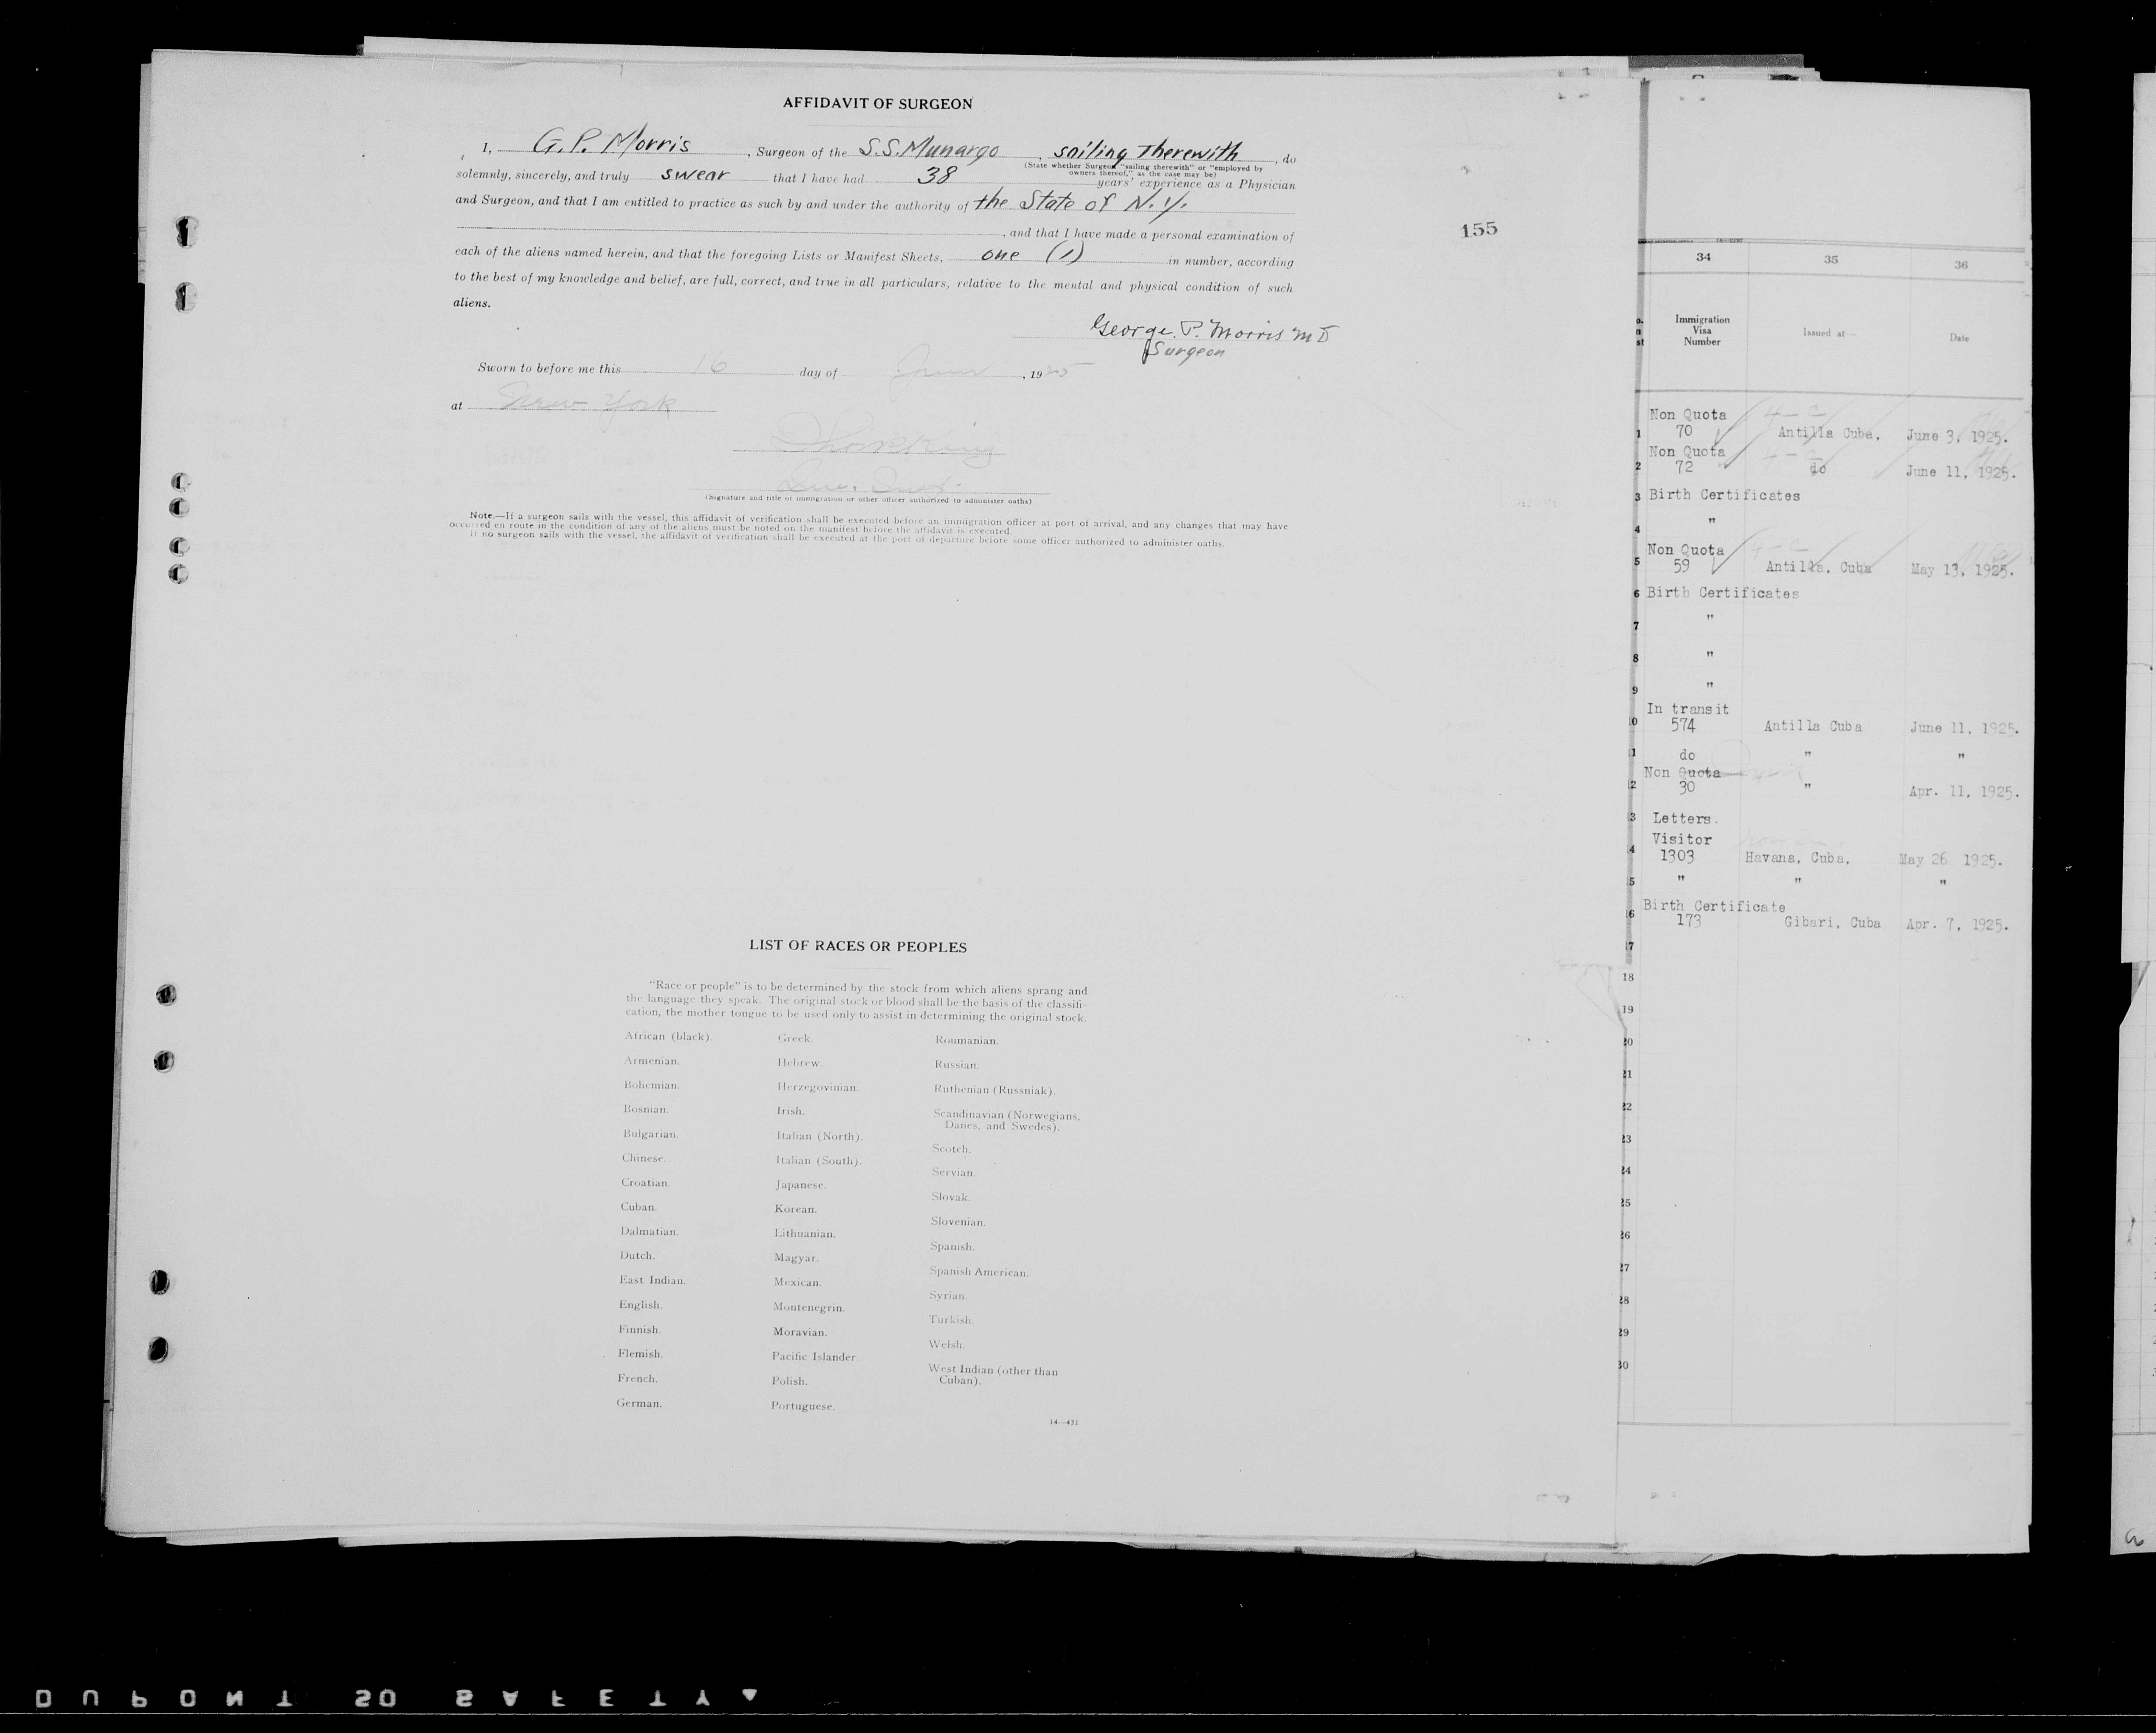 AFFIDAVIT OF SURGEON
I, G. P. Morris, Surgeon of the S.S. Munargo, sailing therewith, do
(State whether Surgeon "sailing therewith" or "employed by
owners thereof," as the case may be)
solemnly, sincerely, and truly swear that I have had 38 years' experience as a Physician
and Surgeon, and that I am entitled to practice as such by and under the authority of the State of N. Y.
, and that I have made a personal examination of
each of the aliens named herein, and that the foregoing Lists or Manifest Sheets, one (1) in number, according
to the best of my knowledge and belief, are full, correct, and true in all particulars, relative to the mental and physical condition of such
aliens.
George. P. Morris M D
Surgeon
Sworn to before me this 16 day of June, 1925
at New York
(Signature and title of immigration or other officer authorized to administer oaths)
Note.—If a surgeon sails with the vessel, this affidavit of verification shall be executed before an immigration officer at port of arrival, and any changes that may have
occurred en route in the condition of any of the aliens must be noted on the manifest before the affidavit is executed.
If no surgeon sails with the vessel, the affidavit of verification shall be executed at the port of departure before some officer authorized to administer oaths.
155
LIST OF RACES OR PEOPLES
"Race or people" is to be determined by the stock from which aliens sprang and
the language they speak. The original stock or blood shall be the basis of the classifi-
cation, the mother tongue to be used only to assist in determining the original stock.
African (black).
Armenian.
Bohemian.
Bosnian.
Bulgarian.
Chinese.
Croatian.
Cuban.
Dalmatian.
Dutch.
East Indian.
English.
Finnish.
Flemish.
French.
German.
Greek.
Hebrew.
Herzegovinian.
Irish.
Italian (North).
Italian (South).
Japanese.
Korean.
Lithuanian.
Magyar.
Mexican.
Montenegrin.
Moravian.
Pacific Islander.
Polish.
Portuguese.
Roumanian.
Russian.
Ruthenian (Russniak).
Scandinavian (Norwegians,
Danes, and Swedes).
Scotch.
Servian.
Slovak.
Slovenian.
Spanish.
Spanish American.
Syrian.
Turkish.
Welsh.
West Indian (other than
Cuban).
14—431
34 35 36
Immigration
Visa
Number
Issued at— Date
Non Quota
1 70 Antilla Cuba, June 3, 1925.
Non Quota
2 72 do June 11, 1925.
3 Birth Certificates
4 "
Non Quota
5 59 Antilla, Cuba May 13, 1925.
6 Birth Certificates
7 "
8 "
9 "
In transit
0 574 Antilla Cuba June 11, 1925.
1 do " "
Non Quota
2 30 " Apr. 11, 1925.
3 Letters.
Visitor
4 1303 Havana, Cuba, May 26 1925.
5 " " "
Birth Certificate
6 173 Gibari, Cuba Apr. 7, 1925.
17
18
19
20
21
22
23
24
25
26
27
28
29
30
DUPONT SO SAFETY